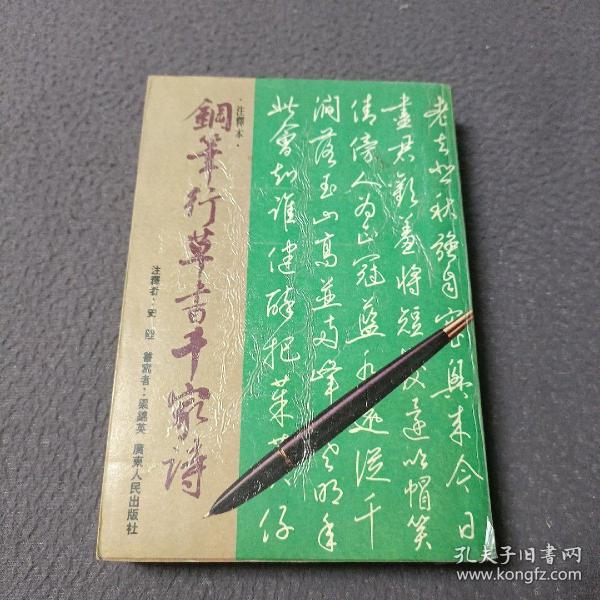 老去悲秋強自寬興來今日
盡君歡羞將短髮還吹帽笑
倩傍人為正冠藍水遠從千
澗落玉山高並兩峰寒明年
此會知誰健醉把茱萸仔
·注釋本·
鋼筆行草書千家詩
注釋者: 書寫者:梁錦英 廣東人民出版社
孔夫子旧书网
www.kongfz.com